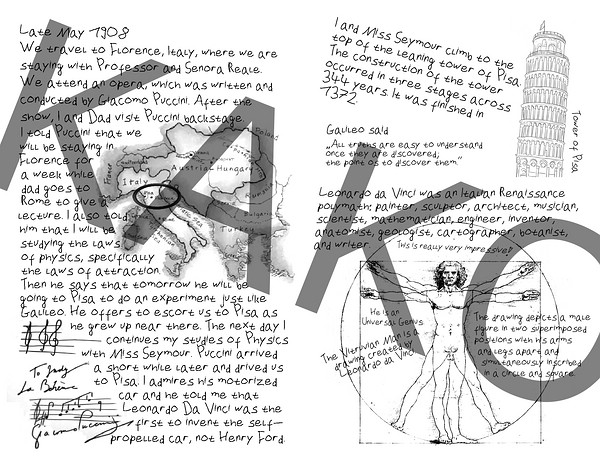 Late May 1908
We travel to Florence, Italy, where we are
staying with Professor and Senora Reale.
We attend an opera, which was written and
conducted by Giacomo Puccini. After the
show, I and Dad visit Puccini backstage.
I told Puccini that we
will be staying in
Florence for
a week while
dad goes to
Rome to give a
lecture. I also told
him that I will be
studying the laws
of physics, specifically
the laws of attraction.
Then he says that tomorrow he will be
going to Pisa to do an experiment just like
Galileo. He offers to escort us to Pisa as
he grew up near there. The next day I
continues my studies of Physics
with Miss Seymour. Puccini arrived
a short while later and drived us
to Pisa. I admires his motorized
car and he told me that
Leonardo Da Vinci was the
first to invent the self-
propelled car, not Henry Ford.
France
Italy
Austria-Hungary
Poland
Bulgaria
Turkey
To Indy
La Bohème
Giacomo Puccini
I and Miss Seymour climb to the
top of the leaning tower of Pisa.
The construction of the tower
occurred in three stages across
344 years. It was finished in
1372.
Tower of Pisa
Galileo said
„All truths are easy to understand
once they are discovered;
the point is to discover them."
Leonardo da Vinci was an Italian Renaissance
polymath: painter, sculptor, architect, musician,
scientist, mathematician, engineer, inventor,
anatomist, geologist, cartographer, botanist,
and writer.
This is really very impressive!
He is an
Universal Genius
The Vitruvian Man is a
drawing created by
Leonardo da Vinci
The drawing depicts a male
figure in two superimposed
positions with his arms
and legs apart and
simultaneously inscribed
in a circle and square